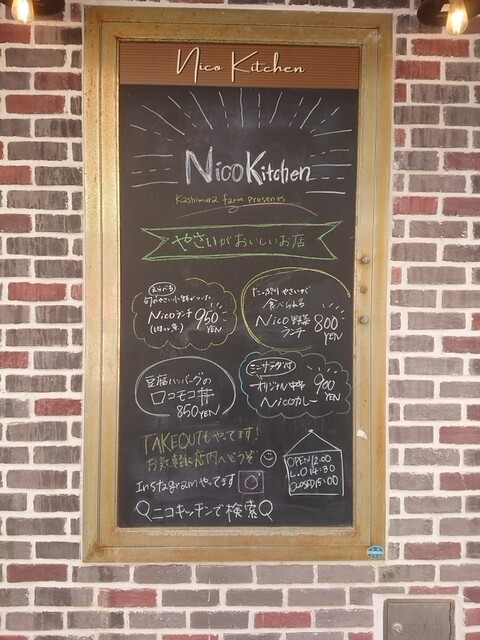 Nico Kitchen
Nico Kitchen
Kashimura farm presents
やさいがおいしいお店
えらべる
旬のやさい小鉢がついた
Nicoランチ
950
YEN
たっぷりやさいが
食べられる
Nico野菜
ランチ
800
YEN
豆腐ハンバーグの
ロコモコ丼
850YEN
ミニサラダ付
オリジナル
Nicoカレー
900
YEN
TAKEOUTもやってます!
お気軽に店内へどうぞ
Instagramやってます
ニコキッチンで検索
OPEN 12:00
L.O 14:30
CLOSED 15:00